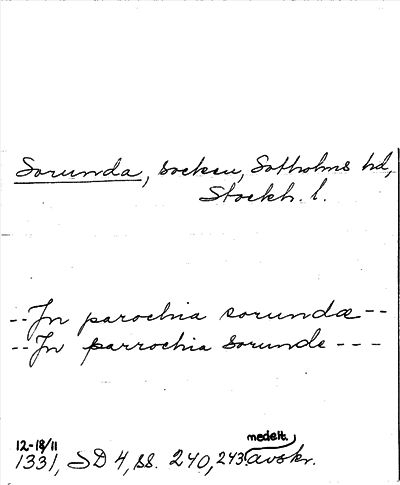 Sorunda, socken, Sotholms hd,
Stockh. l.
--In parochia sorundæ--
--In parrochia Sorunde---
12-18/11 medelt.
1331, SD 4, ss. 240, 243. avskr.